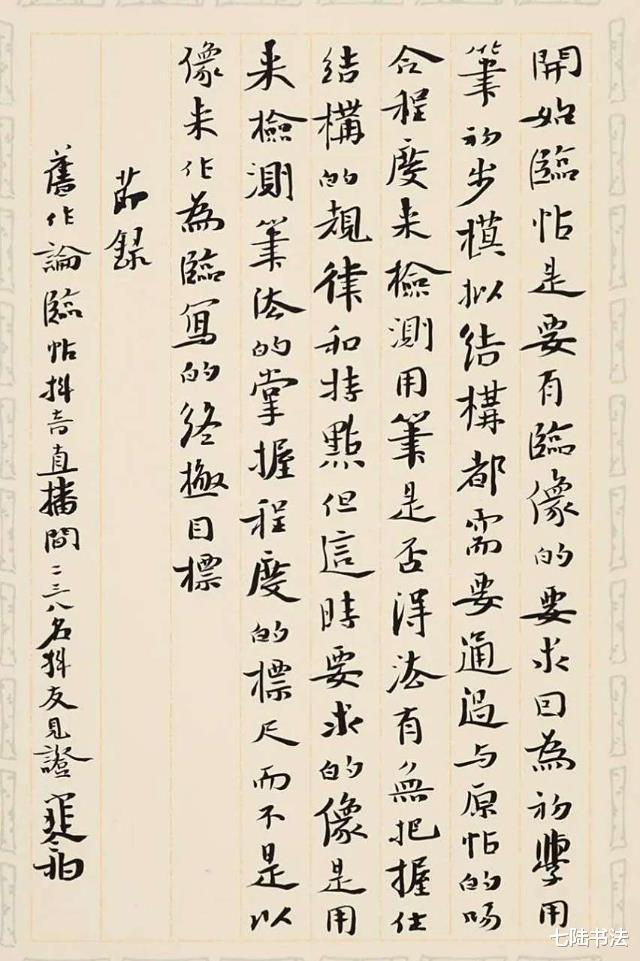 開始臨帖是要有臨像的要求因為初學用
筆初步模拟结構都需要通過与原帖的吻
合程度来檢測用筆是否得法有無把握住
结構的規律和特點但這時要求的像是用
来檢測筆法的掌握程度的標尺而不是以
像来作為臨寫的终極目標
節録
舊作論臨帖抖音直播間二三八名抖友見證
七陆书法